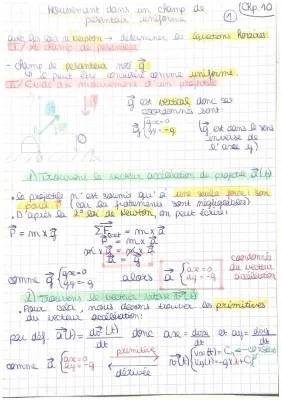 Mouvement dans un champ de
pesanteur uniforme
① Chp. 10
avec les lois de Newton → déterminer les équations horaires
1/ Le champ de pesanteur
- champ de pesanteur noté g⃗
↳ peut être considéré comme uniforme.
2/ Etude du mouvement d'un projectile
g⃗ est vertical donc ses
coordonnées sont:
g⃗ { gx=0
gy=-g
(g⃗ est dans le sens
inverse de
l'axe y)
1) Trouvons le vecteur accélération du projectile a⃗(t)
• Le projectile n'est soumis qu'à une seule force: son
poids P⃗ (car les frottements sont négligeables)
• D'après la 2e loi de Newton, on peut écrire:
P⃗ = m x g⃗
ΣF⃗ext = m x a⃗
P⃗ = m x a⃗
m x g⃗ = m x a⃗
a⃗ = g⃗
comme g⃗ { gx=0
gy=-g
alors a⃗ { ax=0
ay=-g
coordonnées
du vecteur
accélération
2) Trouvons le vecteur vitesse v⃗(t)
• Pour cela, nous devons trouver les primitives
du vecteur accélération:
par déf. a⃗(t) = dv⃗(t)/dt donc ax = dvx/dt et ay = dvy/dt
comme a⃗ { ax=0
ay=-g
primitive
dérivée
v⃗(t) { vx(t) = C1
vy(t) = -g x t + C2